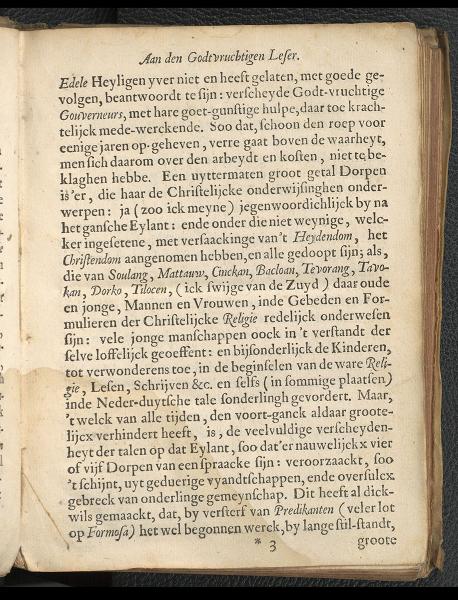 Aan den Godtvruchtigen Leser.
Edele Heyligen yver niet en heeft gelaten, met goede ge-
volgen, beantwoordt te sijn: verscheyde Godt-vruchtige
Gouverneurs, met hare goet-gunstige hulpe, daar toe krach-
telijck mede-werckende. Soo dat, schoon den roep voor
eenige jaren op-geheven, verre gaat boven de waarheyt,
men sich daarom over den arbeydt en kosten, niet te be-
klaghen hebbe. Een uyttermaten groot getal Dorpen
is'er, die haar de Christelijcke onderwijsinghen onder-
werpen: ja (zoo ick meyne) jegenwoordichlijck by na
het gansche Eylant: ende onder die niet weynige, welc-
ker ingesetene, met versaackinge van't Heydendom, het
Christendom aangenomen hebben, en alle gedoopt sijn; als,
die van Soulang, Mattauw, Cinckan, Bacloan, Tevorang, Tavo-
kan, Dorko, Tilocen, (ick swijge van de Zuyd) daar oude
en jonge, Mannen en Vrouwen, inde Gebeden en For-
mulieren der Christelijcke Religie redelijck onderwesen
sijn: vele jonge manschappen oock in't verstandt der
selve loffelijck geoeffent: en bijsonderlijck de Kinderen,
tot verwonderens toe, in de beginselen van de ware Reli-
gie, Lesen, Schrijven &c. en selfs (in sommige plaatsen)
inde Neder-duytsche tale sonderlingh gevordert. Maar,
't welck van alle tijden, den voort-ganck aldaar groote-
lijcx verhindert heeft, is, de veelvuldige verscheyden-
heyt der talen op dat Eylant, soo dat'er nauwelijckx vier
of vijf Dorpen van een spraacke sijn: veroorzaackt, soo
't schijnt, uyt geduerige vyandtschappen, ende oversulcx
gebreck van onderlinge gemeynschap. Dit heeft al dick-
wils gemaackt, dat, by versterf van Predikanten (veler lot
op Formosa) het wel begonnen werck, by lange stil-standt,
* 3 groote